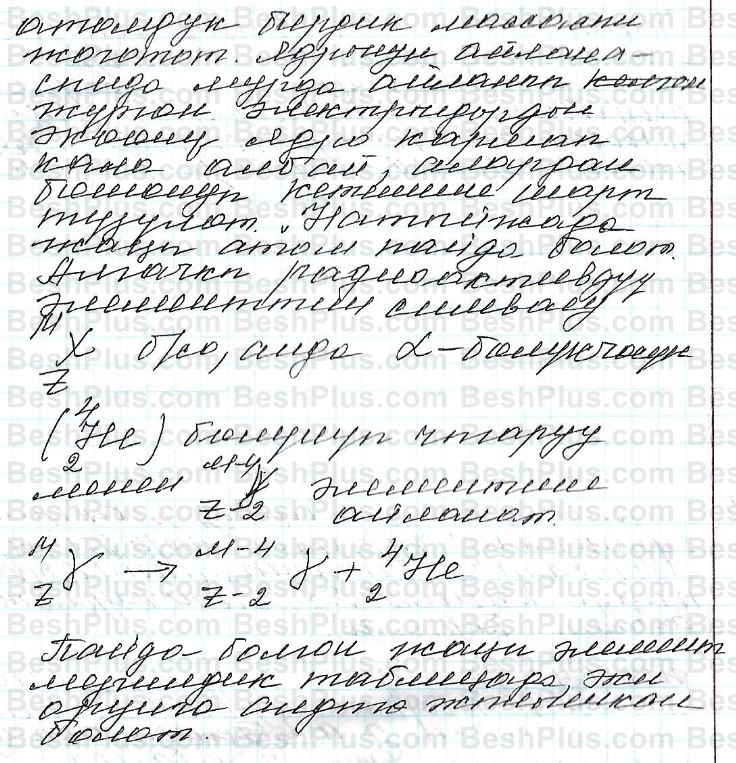 атомдук бирдик массасын
жоготот. Ядронун айлана-
сында мурда айланып келген
жүргөн электрондордон
экөөнү ядро кармап
кала албай, алардан
бөлүнүп кетишине шарт
түзүлөт. Натыйжада
жаңы атом пайда болот.
Алгачкы радиоактивдүү
элементтин символу
M
X болсо, анда α-бөлүкчөнү
Z
(⁴₂He) бөлүнүп чыгаруу
менен M-4 Z-2 Y элементине
айланат.
M Z Y → M-4 Z-2 Y + ⁴₂He
Пайда болгон жаңы элемент
мезгилдик таблицада эки
орунга алдыга жылышкан
болот.